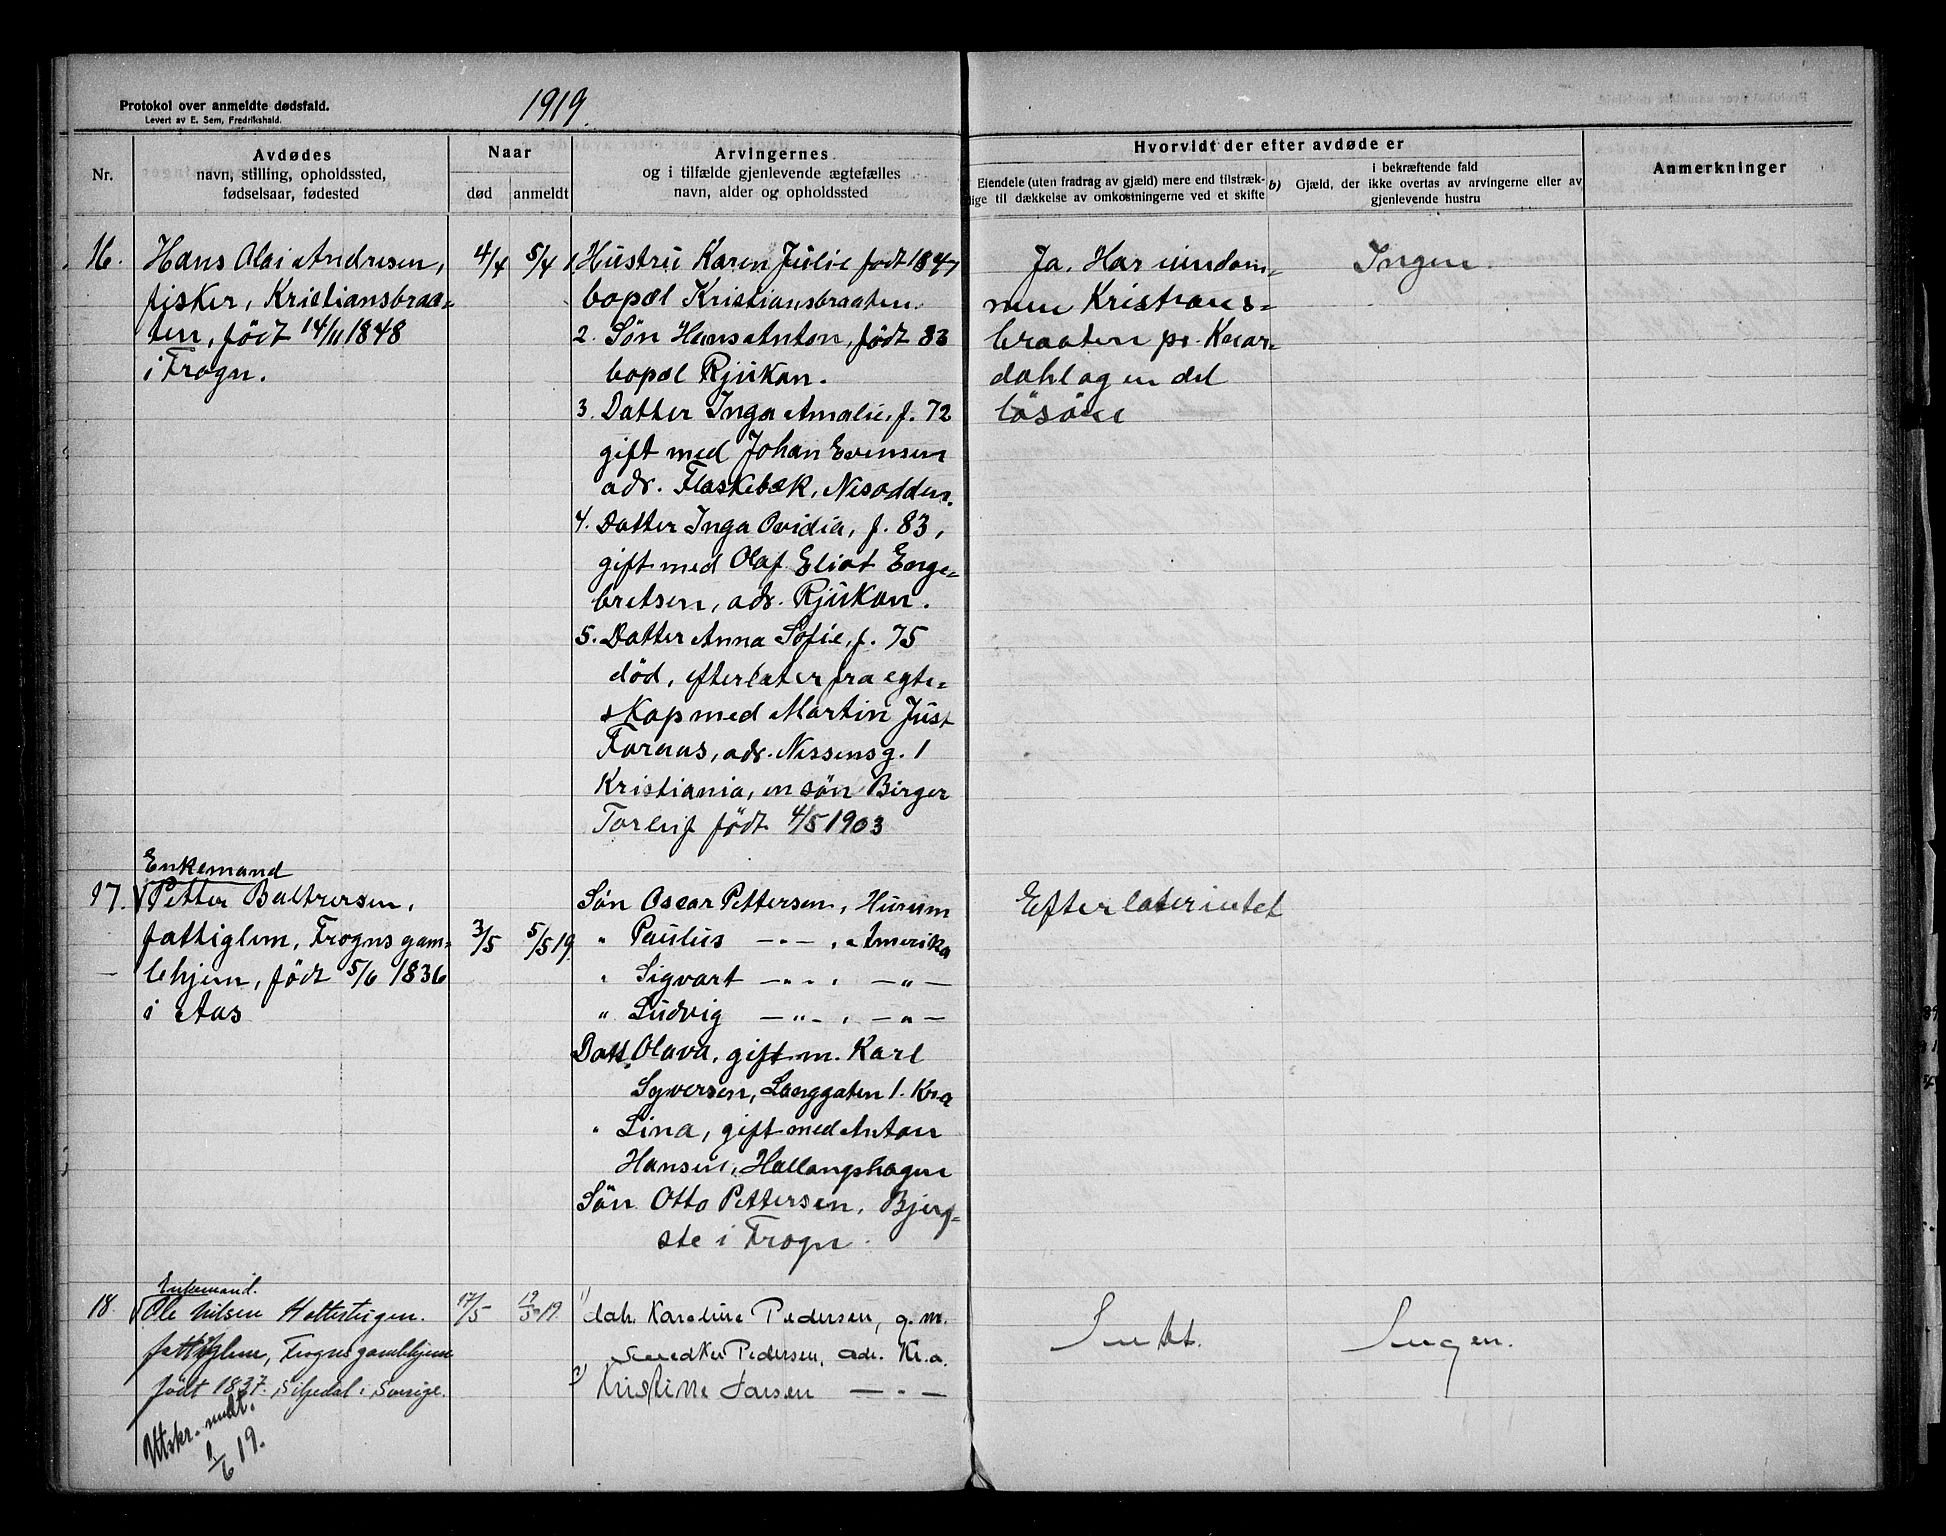 Protokol over anmeldte dødsfald.
Levert av E. Sem, Fredrikshald.
1919.
Nr.
Avdødes
navn, stilling, opholdssted,
fødselsaar, fødested
Naar
død
anmeldt
Arvingernes
og i tilfælde gjenlevende ægtefælles
navn, alder og opholdssted
Hvorvidt der efter avdøde er
Eiendele (uten fradrag av gjæld) mere end tilstræk-
lige til dækkelse av omkostningerne ved et skifte
b)
i bekræftende fald
Gjæld, der ikke overtas av arvingerne eller av
gjenlevende hustru
Anmerkninger
16.
Hans Olai Andresen,
fisker, Kristiansbraa-
ten, født 14/11 1848
i Frogn.
4/4
5/4
1. Hustru Karen Julie født 1847
bopæl Kristiansbraaten.
2. Søn Hans Anton, født 83
bopæl Rjukan.
3. Datter Inga Amalie, f. 72
gift med Johan Evensen
adr. Flaskebæk, Nesodden.
4. Datter Inga Ovidia, f. 83,
gift med Olaf Eliot Enge-
bretsen, adr. Rjukan.
5. Datter Anna Sofie, f. 75
død, efterlater fra egte-
skap med Martin Just
Foraas, adr. Nissensg. 1
Kristiania, en søn Birger
Torleif født 4/5 1903
Ja. Har eiendom-
men Kristians-
braaten pr. Knar-
dahl og en del
løsøre
Ingen.
Enkemand
17. Petter Baltsersen,
fattiglem, Frogns gam-
lehjem, født 5/6 1836
i Aas
3/5
5/5 19.
Søn Oscar Pettersen, Hurum
" Paulus — " — , Amerika
" Sigvart — " — , — " —
" Ludvig — " — , — " —
Datt. Olava, gift m. Karl
Syversen, Langgaten 1. Kra
" Lina, gift med Anton
Hansen, Hallangshagen
Søn Otto Pettersen, Bjerg-
ste i Frogn.
Efterlater intet
Enkemand.
18. Ole Nilsen Holterstugen.
fattiglem, Frogns gamlehjem
født 1837. i Sverige.
17/5
19/5 19.
1) datr. Karoline Pedersen, g. m.
Snedker Pedersen, adr. Kr.a.
2) Kristine Larsen — " —
Intet.
Ingen.
Utskr. meddt.
1/6 19.